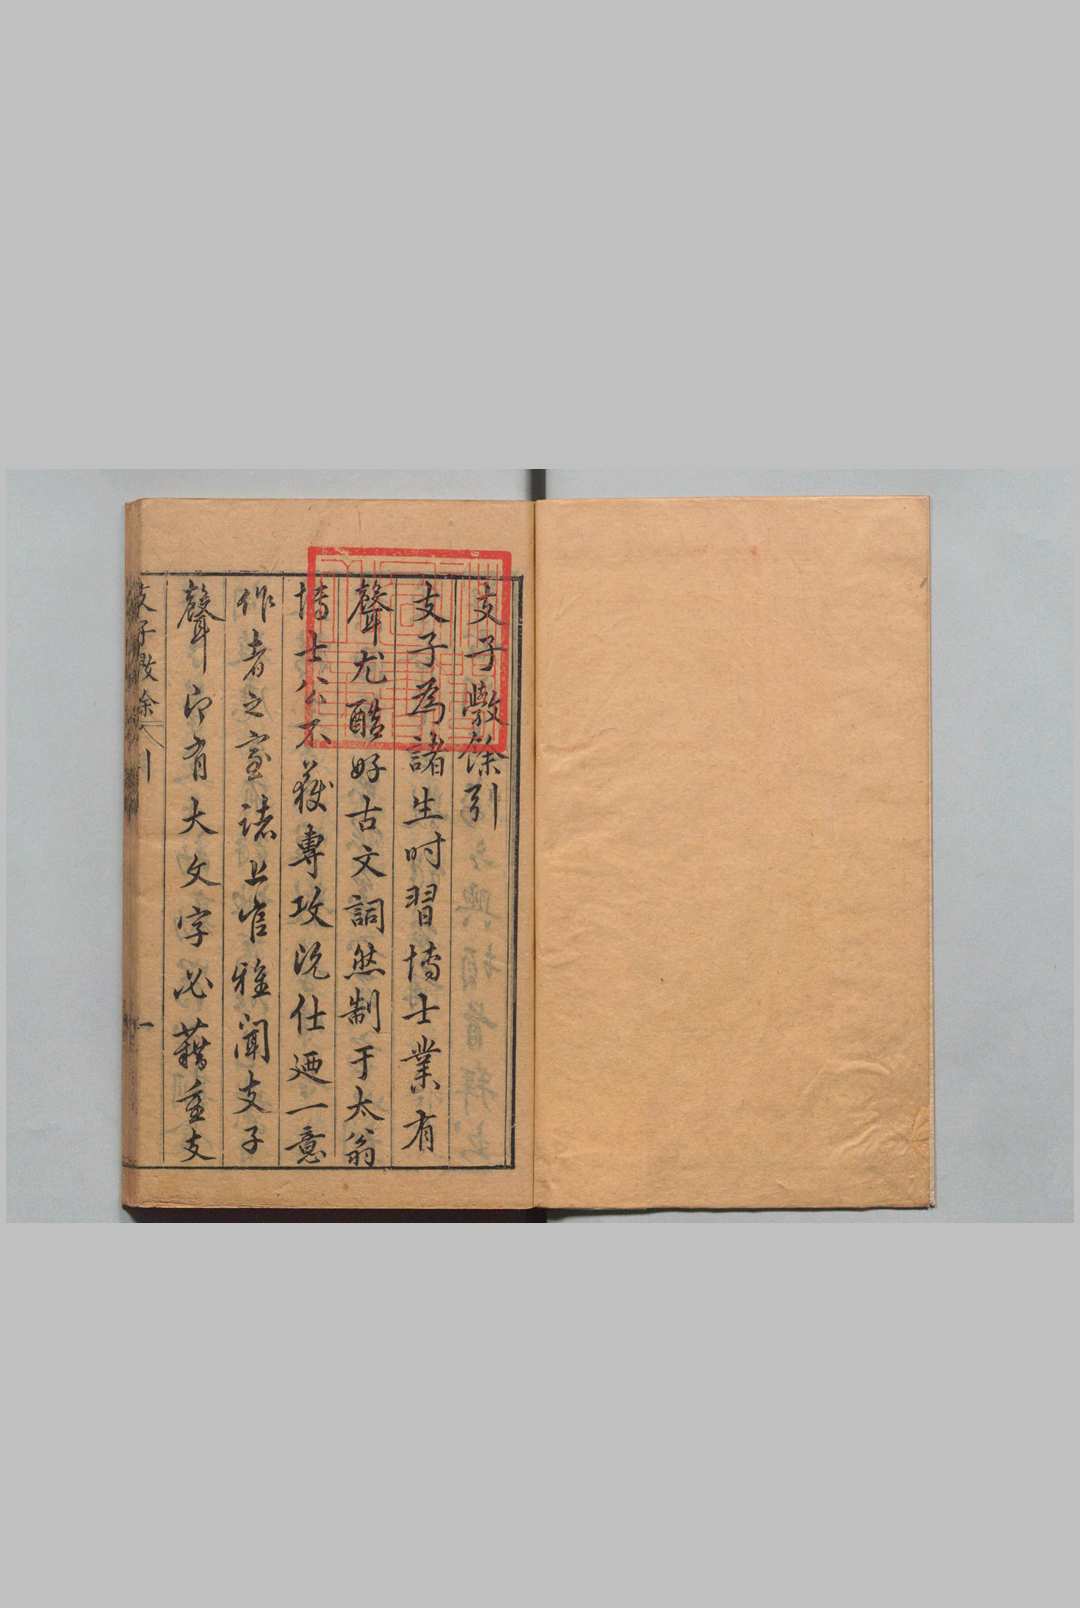 支子斅餘引
支子為諸生时習博士業有
聲尤酷好古文詞然制于太翁
博士公不獲專攻既仕迺一意
作者之室諸上官雅聞支子
聲即有大文字必藉重支
支子斅余 引 一